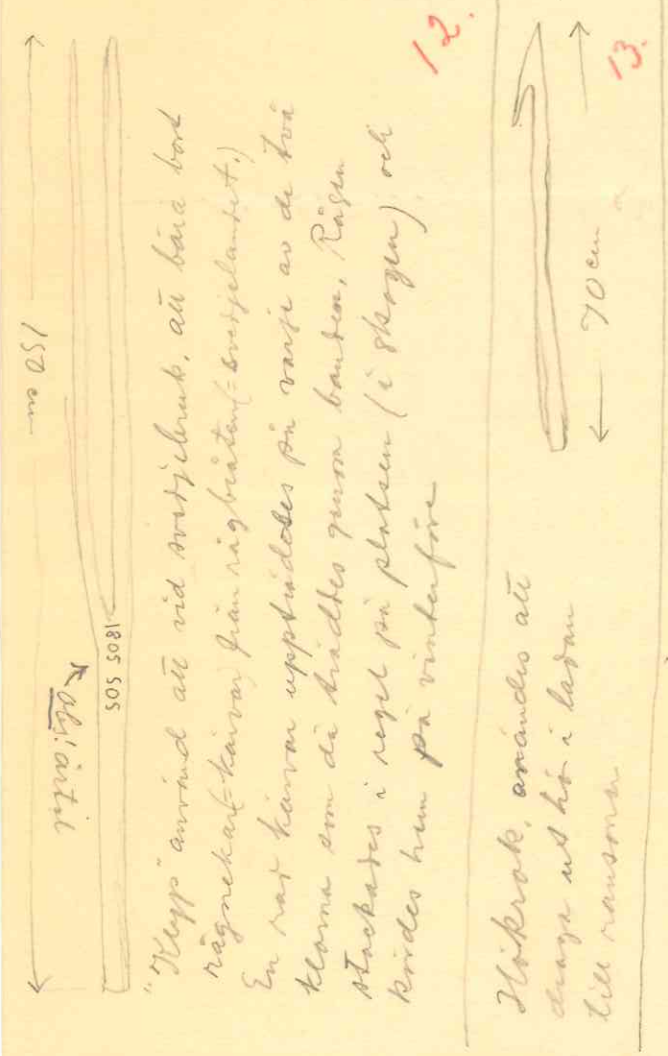 150 cm
obj: artik
1805 SOS
"Klypp" använd att vid svedjebruk, att bära bort
rågnekar(=kärvar) från rågbråten(=svedjelandet.)
En rad kärvar uppträddes på varje av de två
klorna som då träddes genom banden, Rågen
stackades i regel på platsen (i skogen) och
kördes hem på vinterföre
12.
Hökrok, användes att
draga ut hö i ladan
till ransoner
70 cm
13.